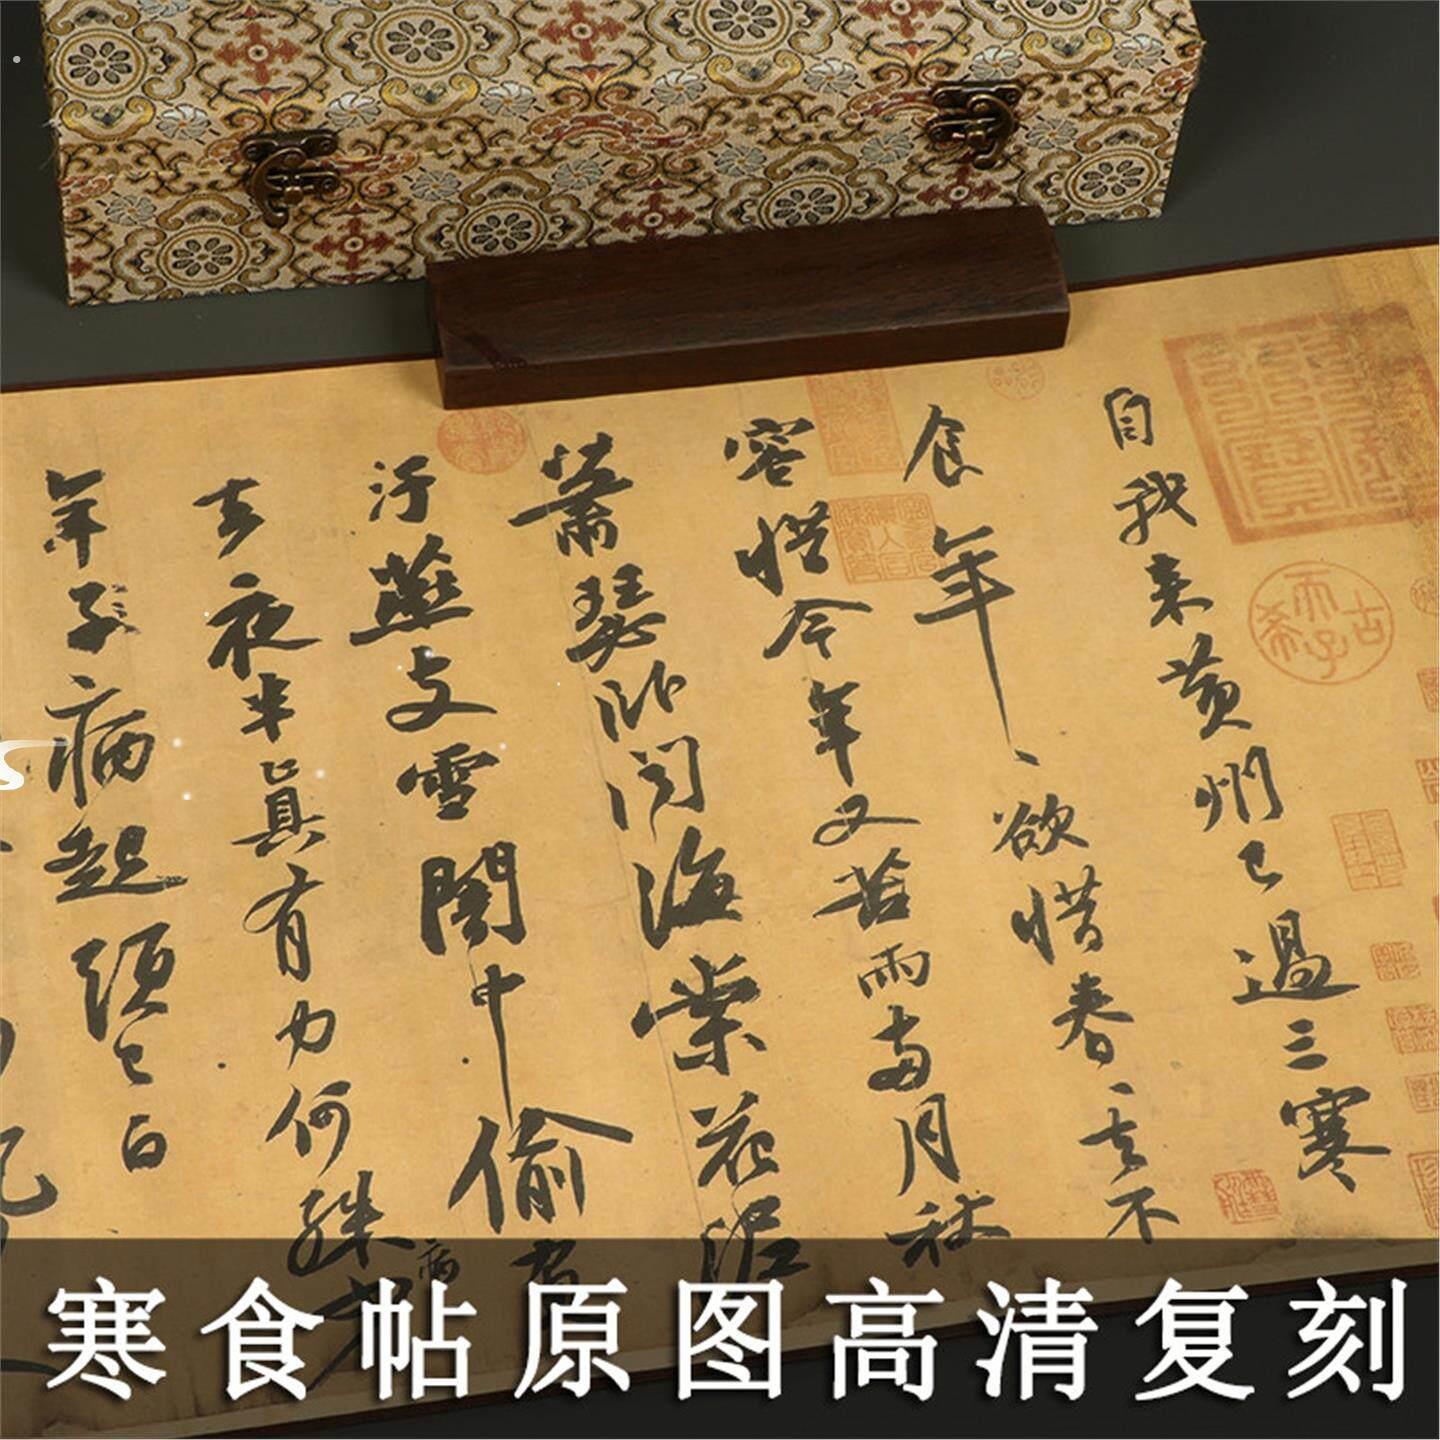 自我来黄州已過三寒
食年々欲惜春々去不
容惜今年又苦雨兩月秋
蕭瑟卧聞海棠花泥
汙燕支雪闇中偷負
去夜半真有力何殊少
病
年子病起頭已白
古希天子
寒食帖原图高清复刻